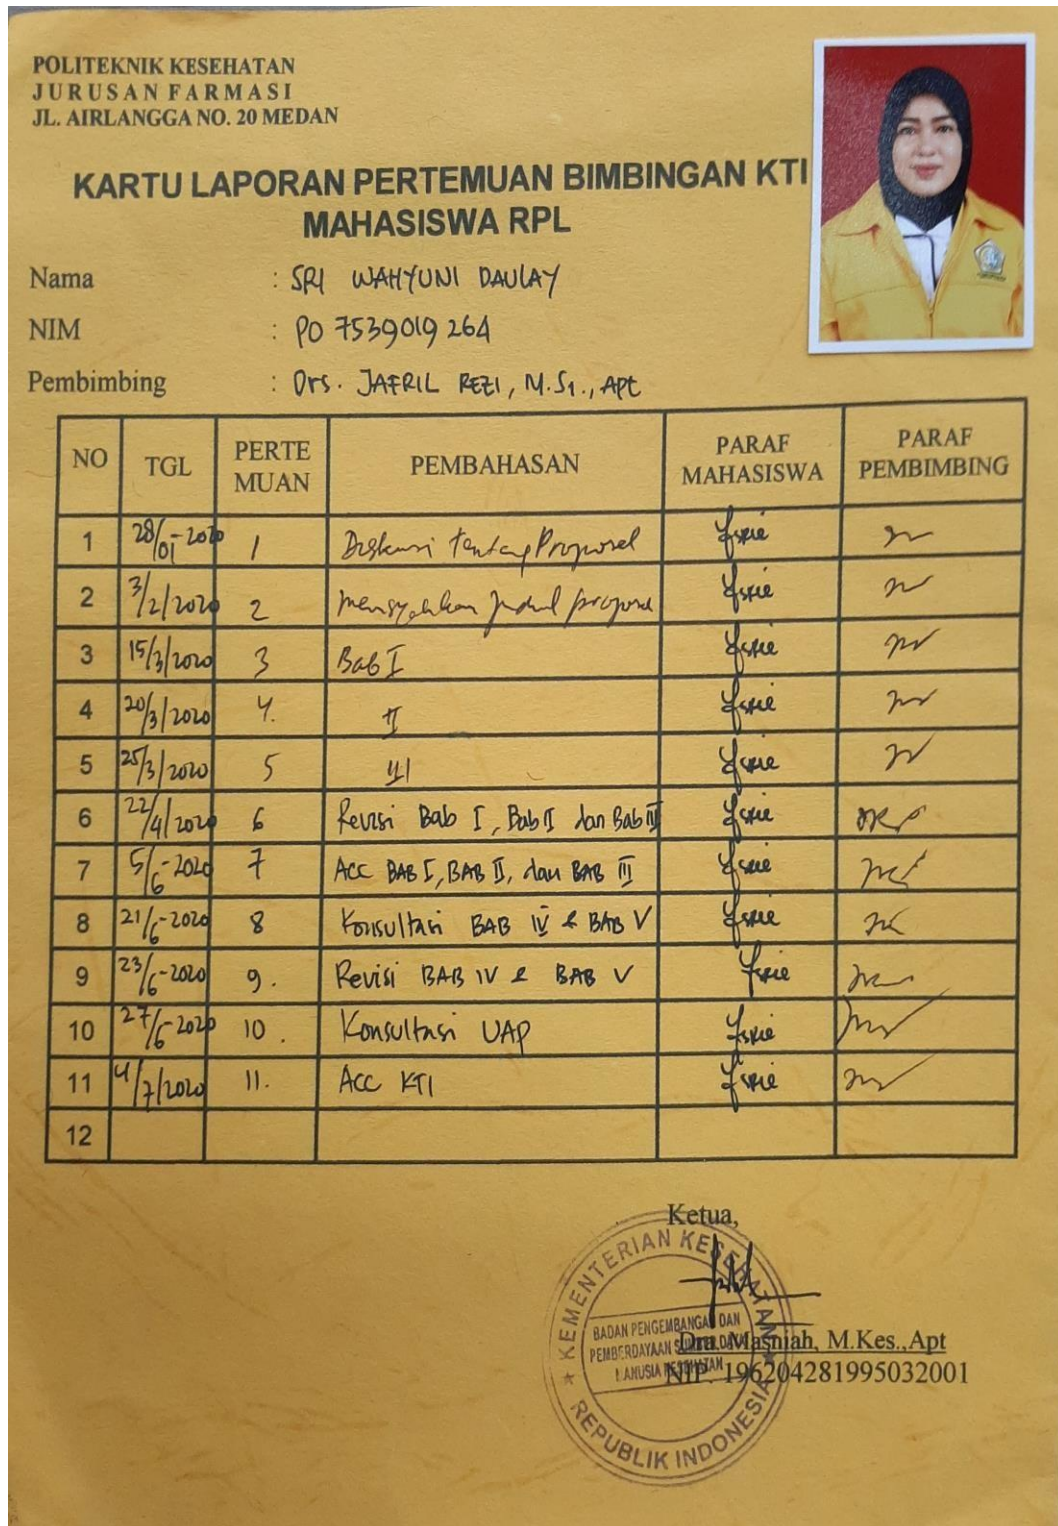 POLITEKNIK KESEHATAN
JURUSAN FARMASI
JL. AIRLANGGA NO. 20 MEDAN
KARTU LAPORAN PERTEMUAN BIMBINGAN KTI
MAHASISWA RPL
Nama : SRI WAHYUNI DAULAY
NIM : PO 7539019 264
Pembimbing : Drs. JAFRIL REZI, M.Si., Apt
NO TGL PERTE MUAN PEMBAHASAN PARAF MAHASISWA PARAF PEMBIMBING
1 28/01-2020 1 Diskusi tentang Proposal
2 3/2/2020 2 mensyahkan judul proposal
3 15/3/2020 3 Bab I
4 20/3/2020 4. II
5 25/3/2020 5 III
6 22/4/2020 6 Revisi Bab I, Bab II dan Bab III
7 5/6-2020 7 Acc BAB I, BAB II, dan BAB III
8 21/6-2020 8 Konsultasi BAB IV & BAB V
9 23/6-2020 9. Revisi BAB IV & BAB V
10 27/6-2020 10. Konsultasi UAP
11 4/7/2020 11. Acc KTI
12
Ketua,
KEMENTERIAN KESEHATAN
BADAN PENGEMBANGAN DAN
PEMBERDAYAAN SUMBER DAYA
MANUSIA KESEHATAN
REPUBLIK INDONESIA
Dra. Masniah, M.Kes.,Apt
NIP. 196204281995032001